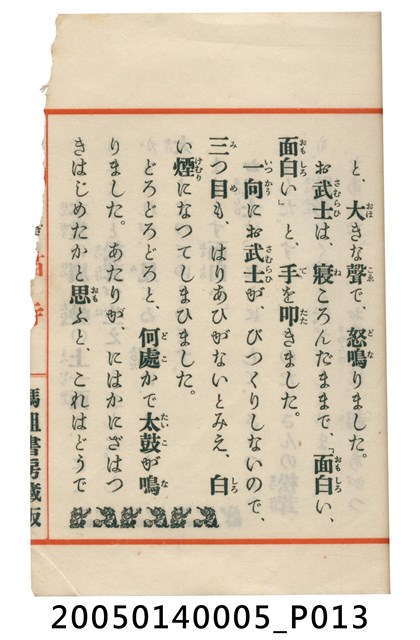 と、大きな聲で、怒鳴りました。
お武士は、寢ころんだままで、「面白い、
面白い」と、手を叩きました。
一向にお武士が、びつくりしないので、
三つ目も、はりあひがないとみえ、白
い煙になつてしまひました。
どろどろどろと、何處かで太鼓が鳴
りました。あたりが、にはかにざはつ
きはじめたかと思ふと、これはどうで
媽祖書房藏版
20050140005_P013